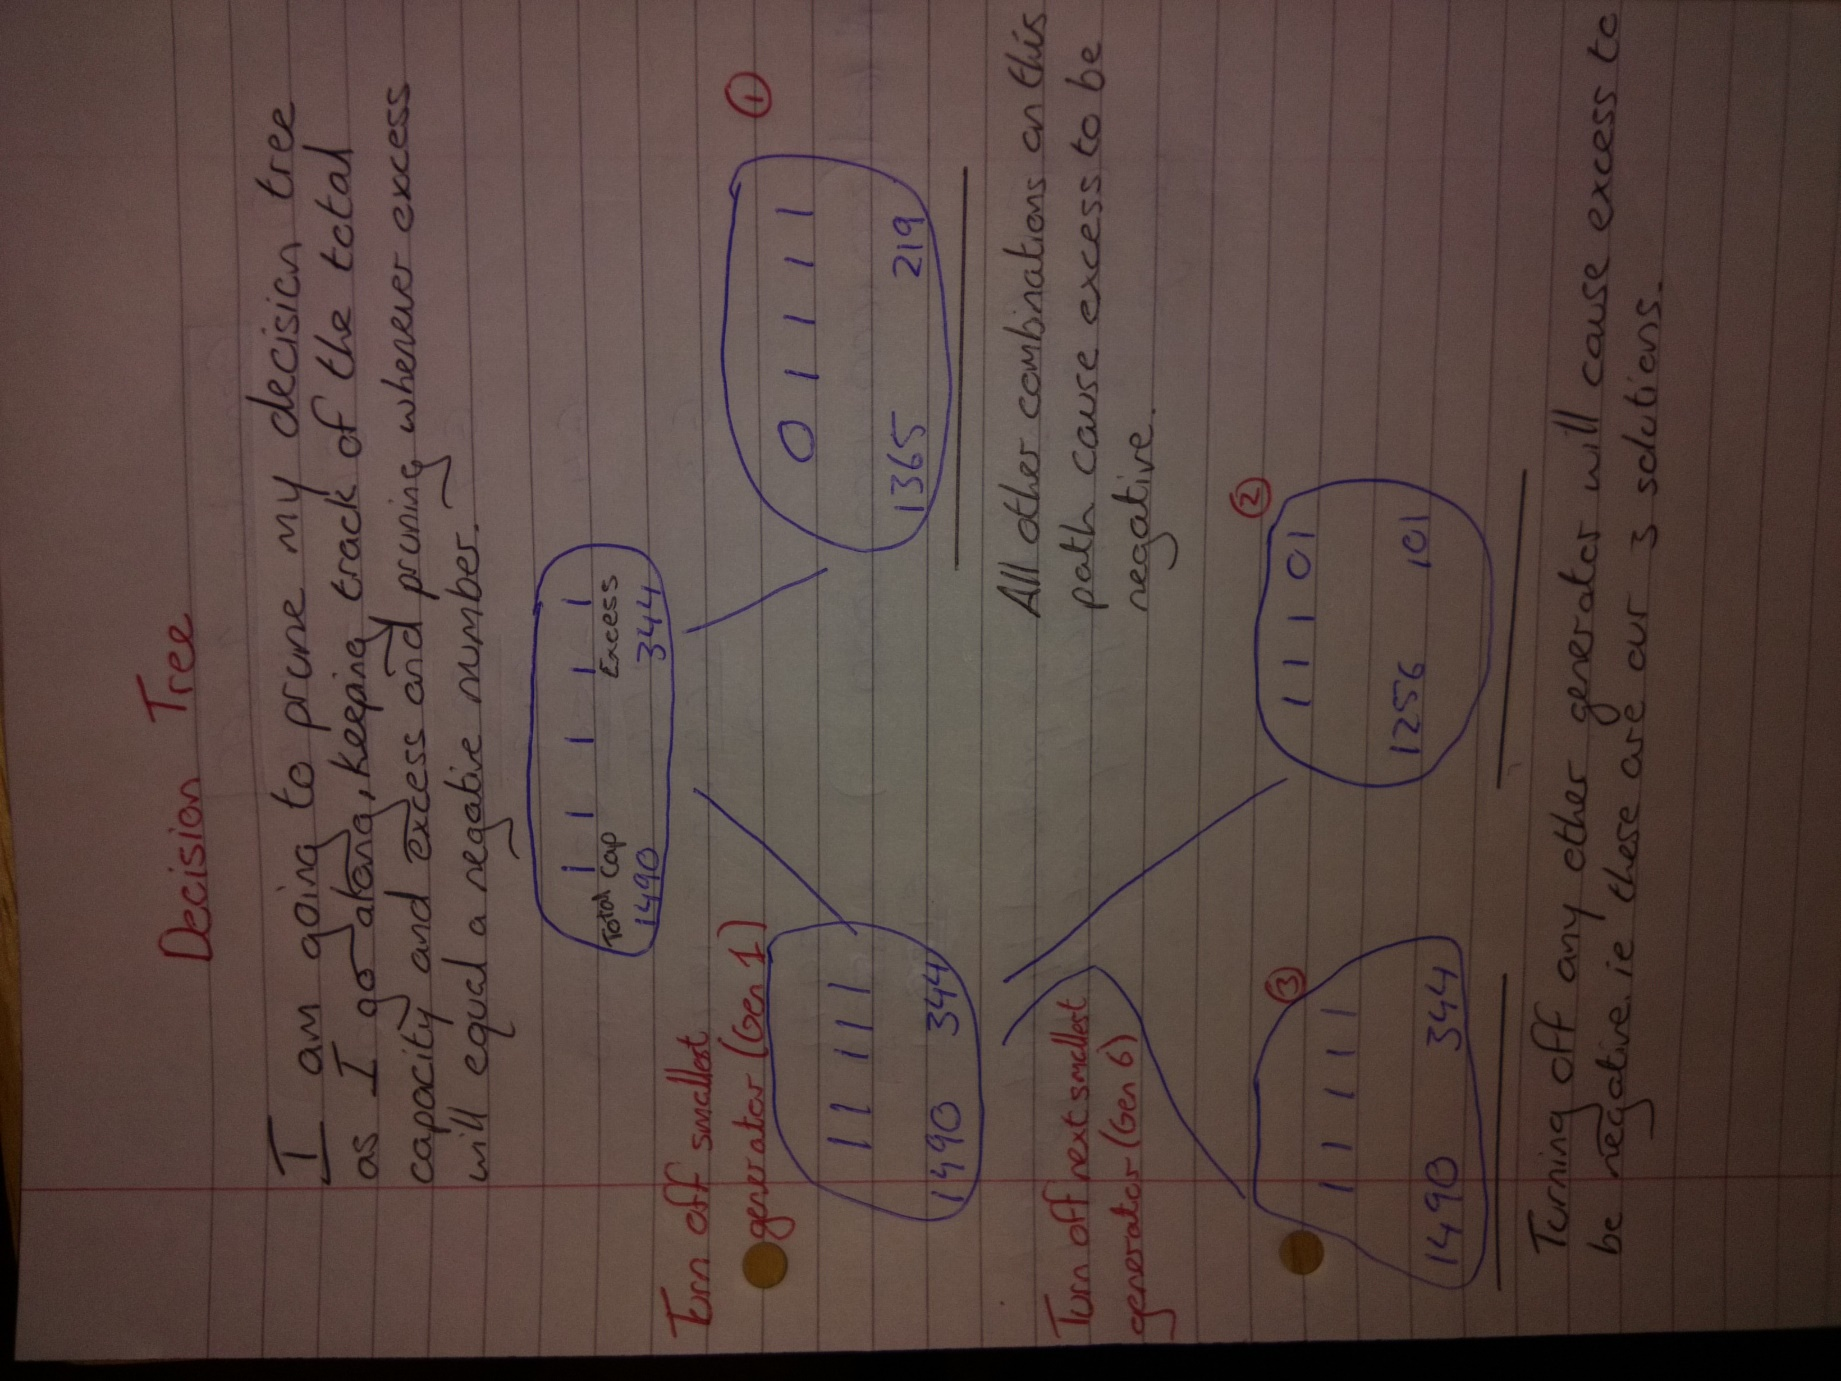 Decision Tree
I am going to prune my decision tree
as I go along, keeping track of the total
capacity and excess and pruning whenever excess
will equal a negative number.
1 1 1 1 1
Total Cap Excess
1490 344
Turn off smallest
generator (Gen 1)
1 1 1 1 1
1490 344
0 1 1 1 1
1365 219
①
All other combinations on this
path cause excess to be
negative.
Turn off next smallest
generator (Gen 6)
③
1 1 1 1 1
1490 344
②
1 1 1 0 1
1256 101
Turning off any other generator will cause excess to
be negative. ie these are our 3 solutions.